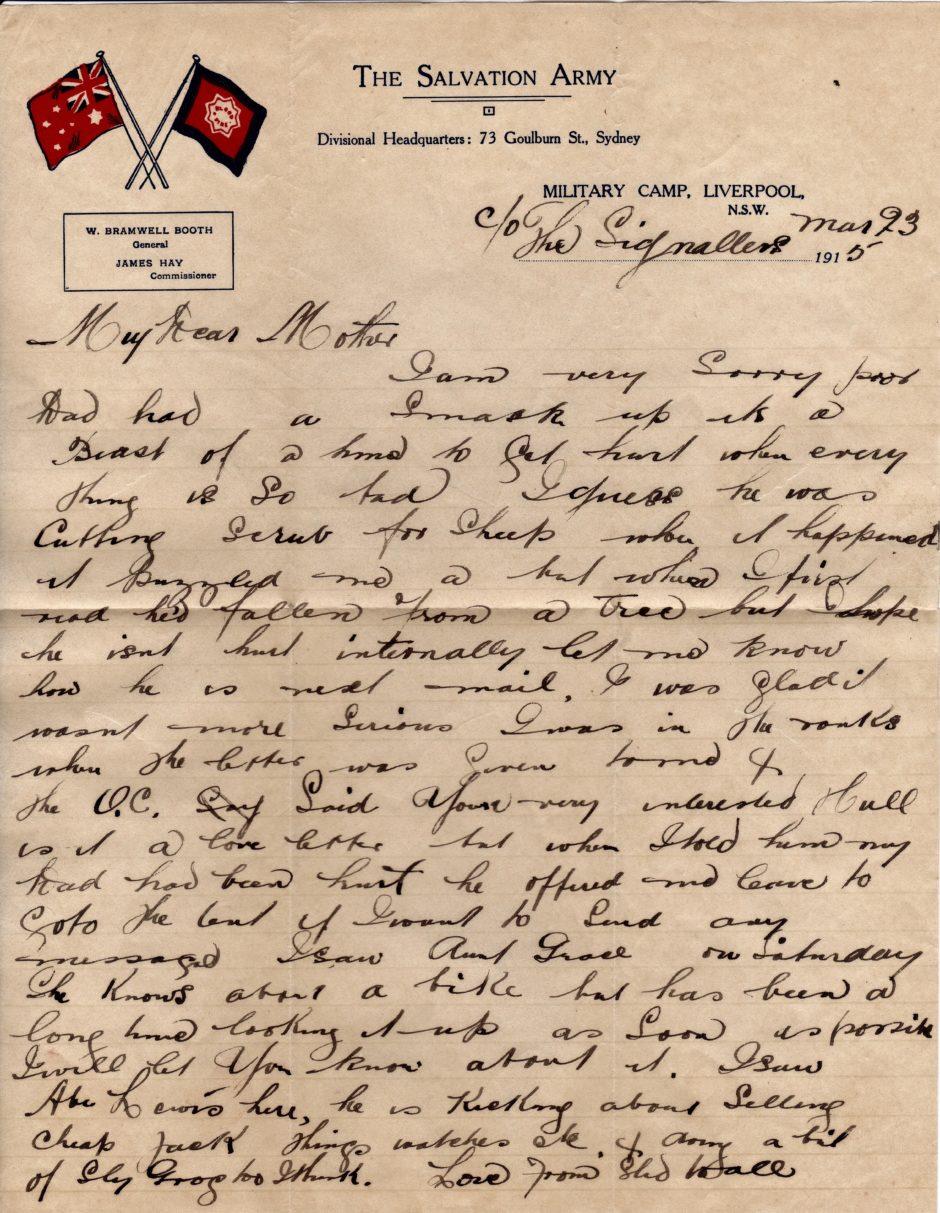 THE SALVATION ARMY
Divisional Headquarters: 73 Goulburn St., Sydney
MILITARY CAMP, LIVERPOOL,
N.S.W.
W. BRAMWELL BOOTH
General
JAMES HAY
Commissioner
c/o The Signallers Mar 23
1915
My Dear Mother
I am very Sorry poor
Dad had a Smash up its a
Beast of a time to Get hurt when every
thing is So bad I guess he was
Cutting Scrub for Sheep when it happened
it Puzzled me a bit when I first
read he'd fallen from a Tree but I hope
he isnt hurt internally let me know
how he is next mail, I was Glad it
wasnt more Serious I was in the ranks
when the letter was Given to me &
the O.C. Said Your very interested Hull
is it a love letter but when I told him my
Dad had been hurt he offered me leave to
Goto the tent if I want to Send any
message I saw Aunt Grace on Saturday
She Knows about a bike but has been a
long time looking it up as Soon as possible
I will let You know about it. I saw
Abe Lewis here, he is Kicking about Selling
Cheap Jack things watches etc & doing a bit
of Sly Grog too I think. Love from Sid to all